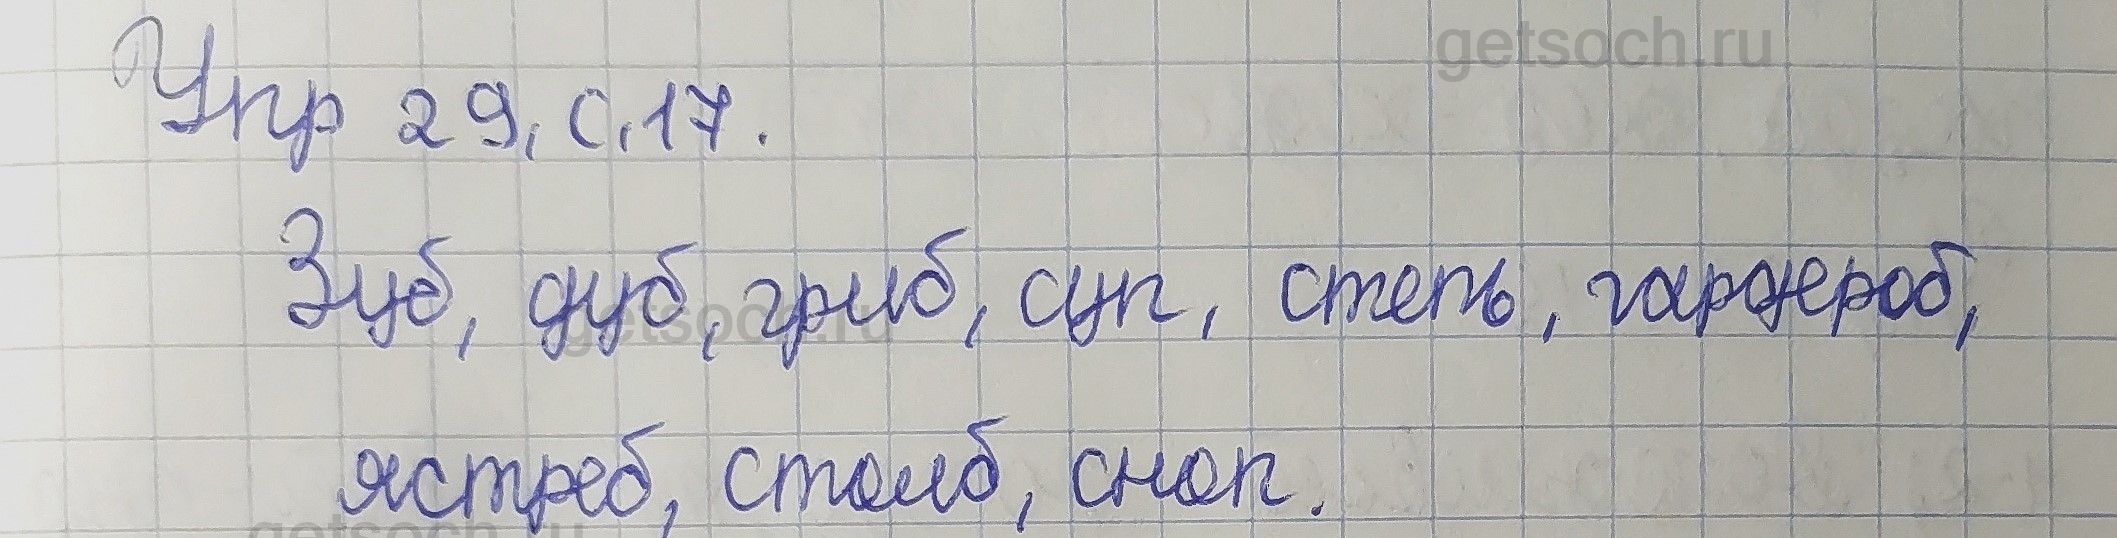 getsoch.ru
Упр 29, с, 17.
Зуб, дуб, гриб, суп, степь, гардероб,
getsoch.ru
ястреб, столб, сноп.
getsoch.ru